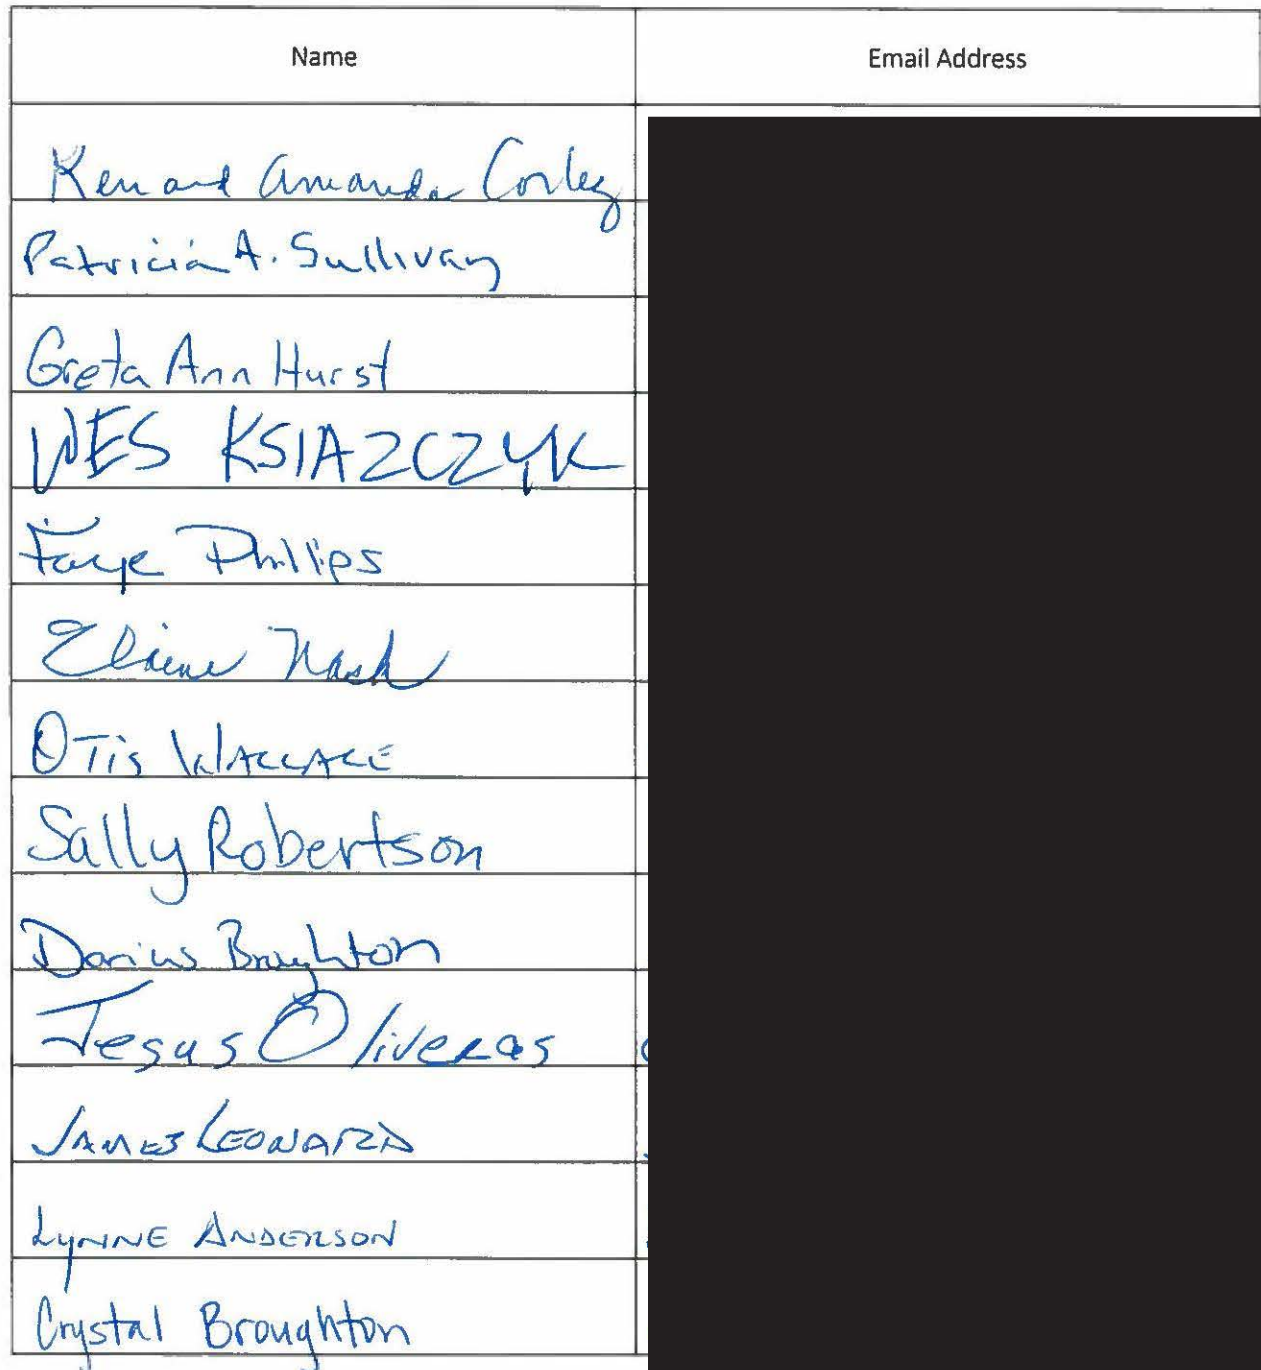 Name Email Address
Ken and Amanda Corley
Patricia A. Sullivan
Greta Ann Hurst
WES KSIAZCZYK
Faye Phillips
Elaine Nash
OTis WALLACE
Sally Robertson
Darius Broughton
Jesus Oliveras
JAMES LEONARD
LYNNE ANDERSON
Crystal Broughton